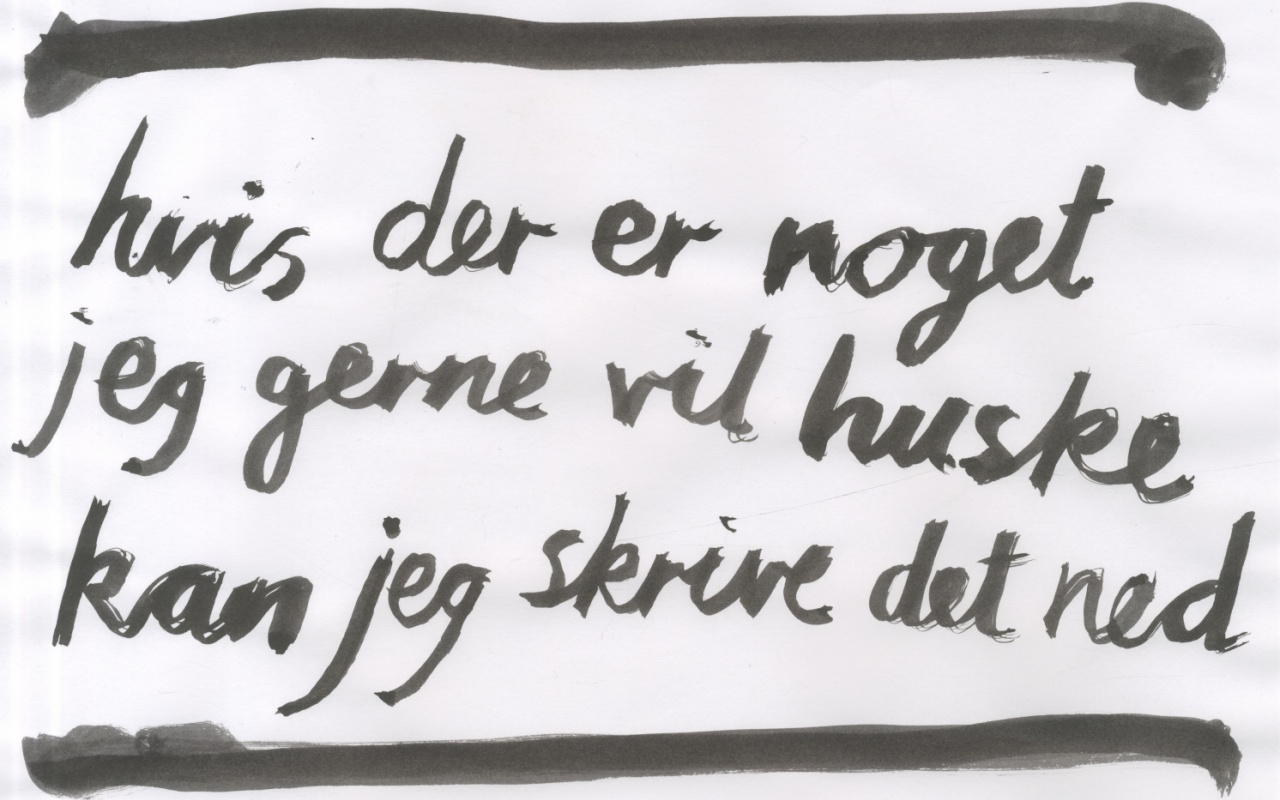 hvis der er noget
jeg gerne vil huske
kan jeg skrive det ned